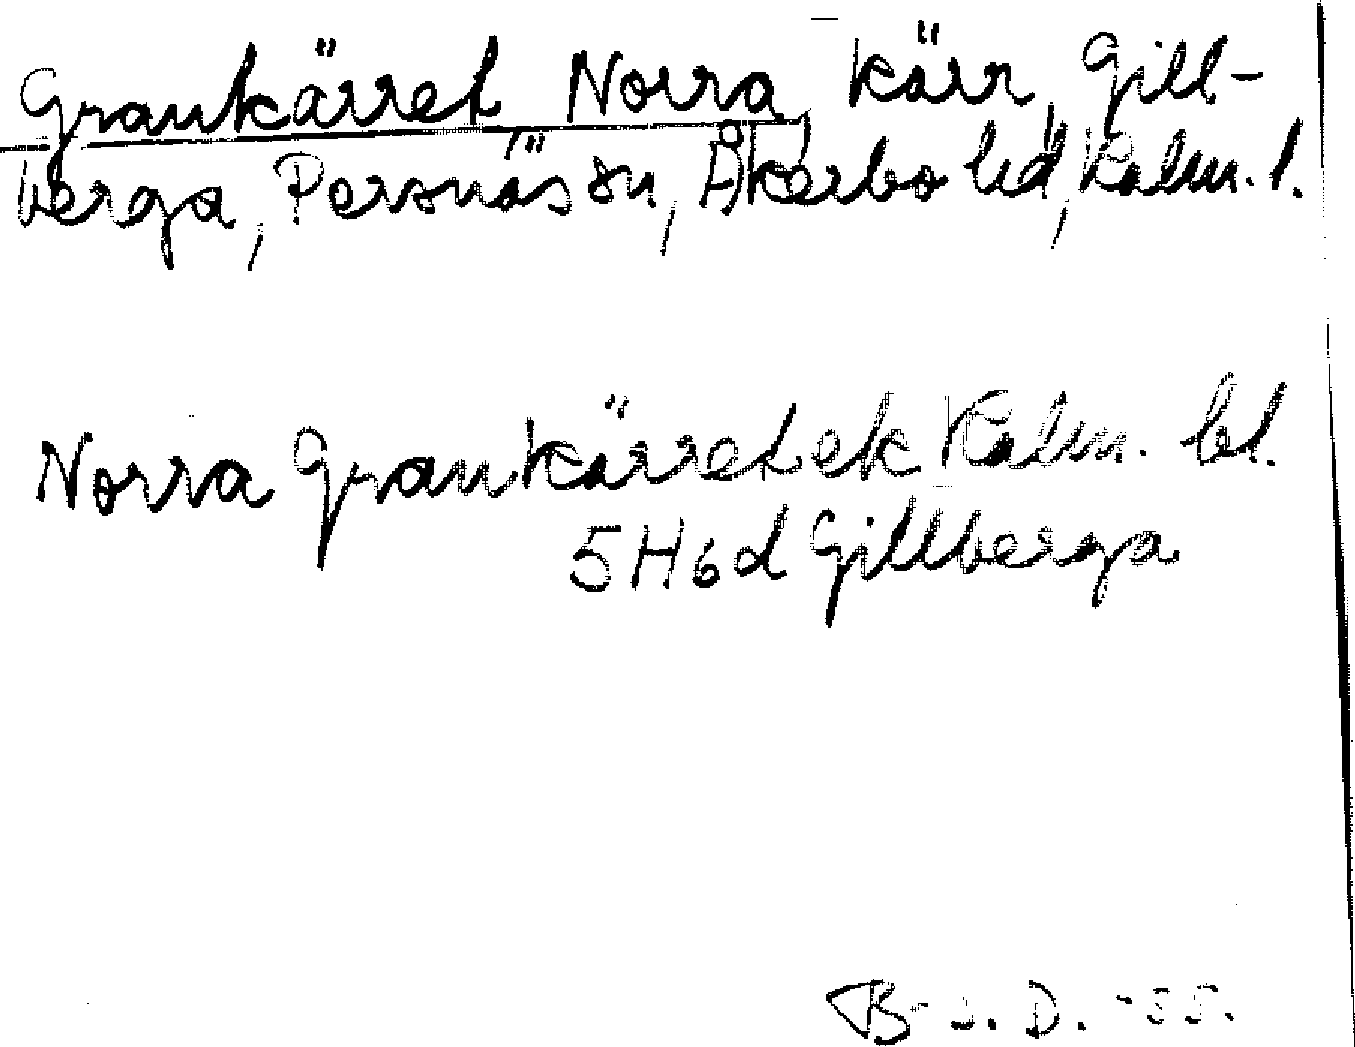 Grankärret Norra, kärr, Gill-
berga, Persnäs sn, Åkerbo hd, Kalm. l.
Norra Grankärret ek Kalm. bl.
5H6d Gillberga
B-s. D. -55.